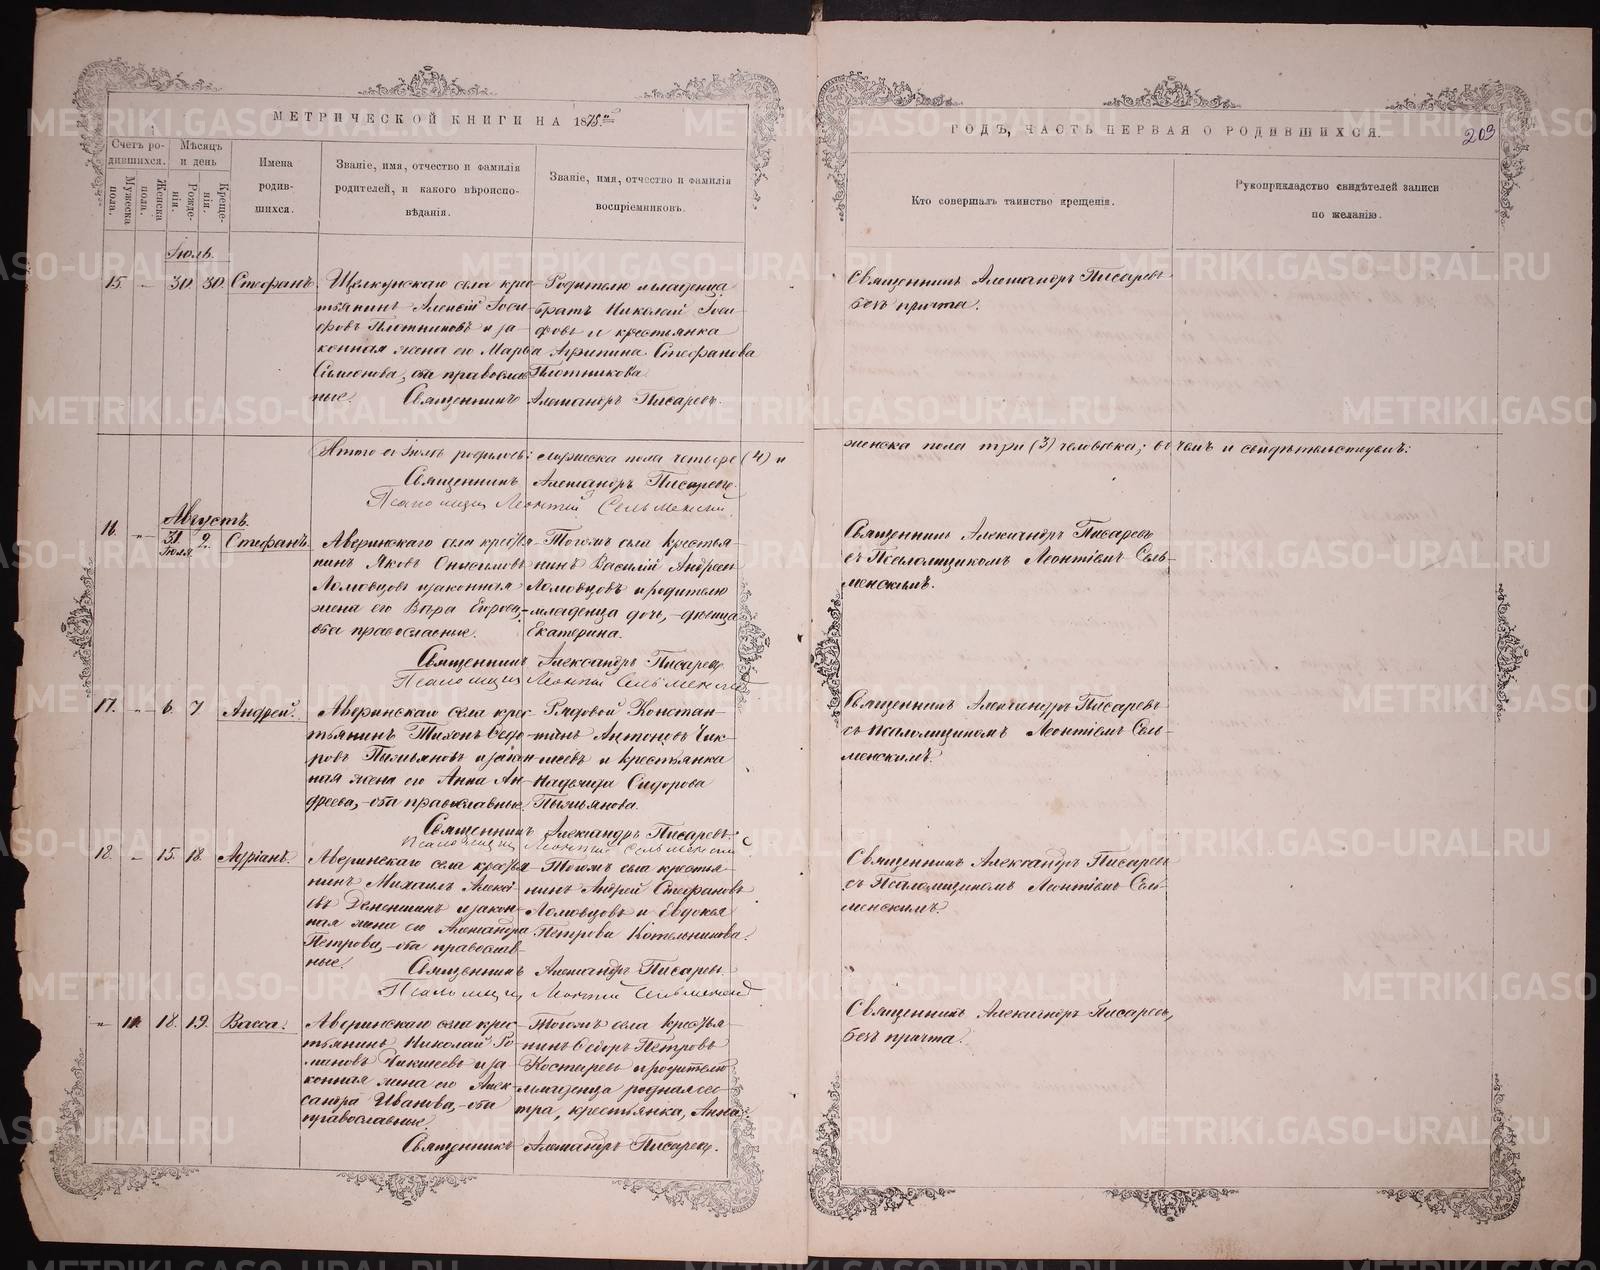 МЕТРИЧЕСКОЙ КНИГИ НА 1875
ГОДЪ, ЧАСТЬ ПЕРВАЯ О РОДИВШИХСЯ.
203
Счетъ ро-
дившихся.
Мужеска
пола.
Женска
пола.
Мѣсяцъ
и день
Рожде-
нія.
Креще-
нія.
Имена
родив-
шихся.
Званіе, имя, отчество и фамилія
родителей, и какого вѣроиспо-
вѣданія.
Званіе, имя, отчество и фамилія
воспріемниковъ.
Кто совершалъ таинство крещенія.
Рукоприкладство свидѣтелей записи
по желанію.
Іюль.
15 30. 30. Стефанъ.
Щелкунскаго села кре-
стьянинъ Алексѣй Іоси-
фовъ Плотниковъ и за-
конная жена его Марѳа
Симеонова, оба православ
ные.
Родителю младенца
братъ Николай Іоси-
фовъ и крестьянка
Агрипина Стефанова
Плотникова
Священникъ Александръ Писаревъ.
Священникъ Александръ Писаревъ
безъ причта.
Итого въ Іюлѣ родилось: мужеска пола четыре (4) и
женска пола три (3) человѣка; въ чемъ и свидѣтельствуемъ:
Священникъ Александръ Писаревъ.
Псаломщикъ Леонтій Сельменскій
Августъ.
16. 31 Іюля 2. Стефанъ.
Аверинскаго села крестья
нинъ Яковъ Онисимовъ
Ломовцовъ и законная
жена его Вѣра Егорова,
оба православные.
Тогожъ села крестья-
нинъ Василій Андреевъ
Ломовцовъ и родителю
младенца дочь, дѣвица
Екатерина.
Священникъ Александръ Писаревъ
Псаломщикъ Леонтій Сельменскій
Священникъ Александръ Писаревъ
съ Псаломщикомъ Леонтіемъ Сель-
менскимъ.
17. 6. 7 Андрей.
Аверинскаго села крес-
тьянинъ Тихонъ Ѳедо-
ровъ Пыльяновъ и закон-
ная жена его Анна Ан-
дреева, оба православные.
Рядовой Констан-
тинъ Антоновъ Чик-
лисевъ и крестьянка
Надежда Сидорова
Пыльянова.
Священникъ Александръ Писаревъ.
Псаломщикъ Леонтій Сельменскій
Священникъ Александръ Писаревъ
съ псаломщикомъ Леонтіемъ Сель-
менскимъ.
18. 15. 18. Адріанъ.
Аверинскаго села крестья
нинъ Михаилъ Алексѣ-
евъ и закон-
ная жена его Александра
Петрова, оба православ-
ные.
Тогожъ села крестья-
нинъ Андрей Стефановъ
Ломовцовъ и Евдокія
Петрова Котельникова.
Священникъ Александръ Писаревъ
Псаломщикъ Леонтій Сельменскій
Священникъ Александръ Писаревъ
съ Псаломщикомъ Леонтіемъ Сель-
менскимъ.
11 18. 19. Васса.
Аверинскаго села крес-
тьянинъ Николай Ро-
мановъ и за-
конная жена его Алек-
сандра Иванова, оба
православные.
Тогожъ села крестья-
нинъ Ѳедоръ Петровъ
Костаревъ и родителю
младенца родная сес-
тра, крестьянка, Анна.
Священникъ Александръ Писаревъ.
Священникъ Александръ Писаревъ,
безъ причта.
METRIKI.GASO-URAL.RU